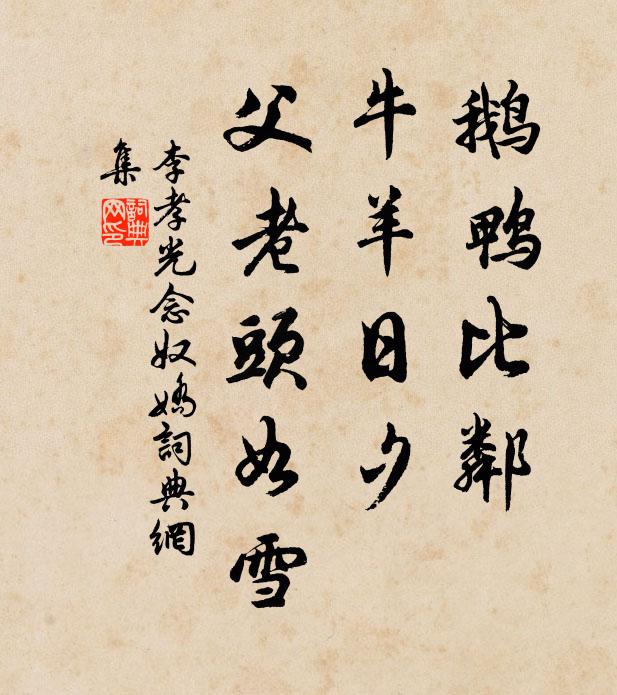 鵝鴨比鄰
牛羊日夕
父老頭如雪
李孝光念奴嬌詞典網
集
詞典網印